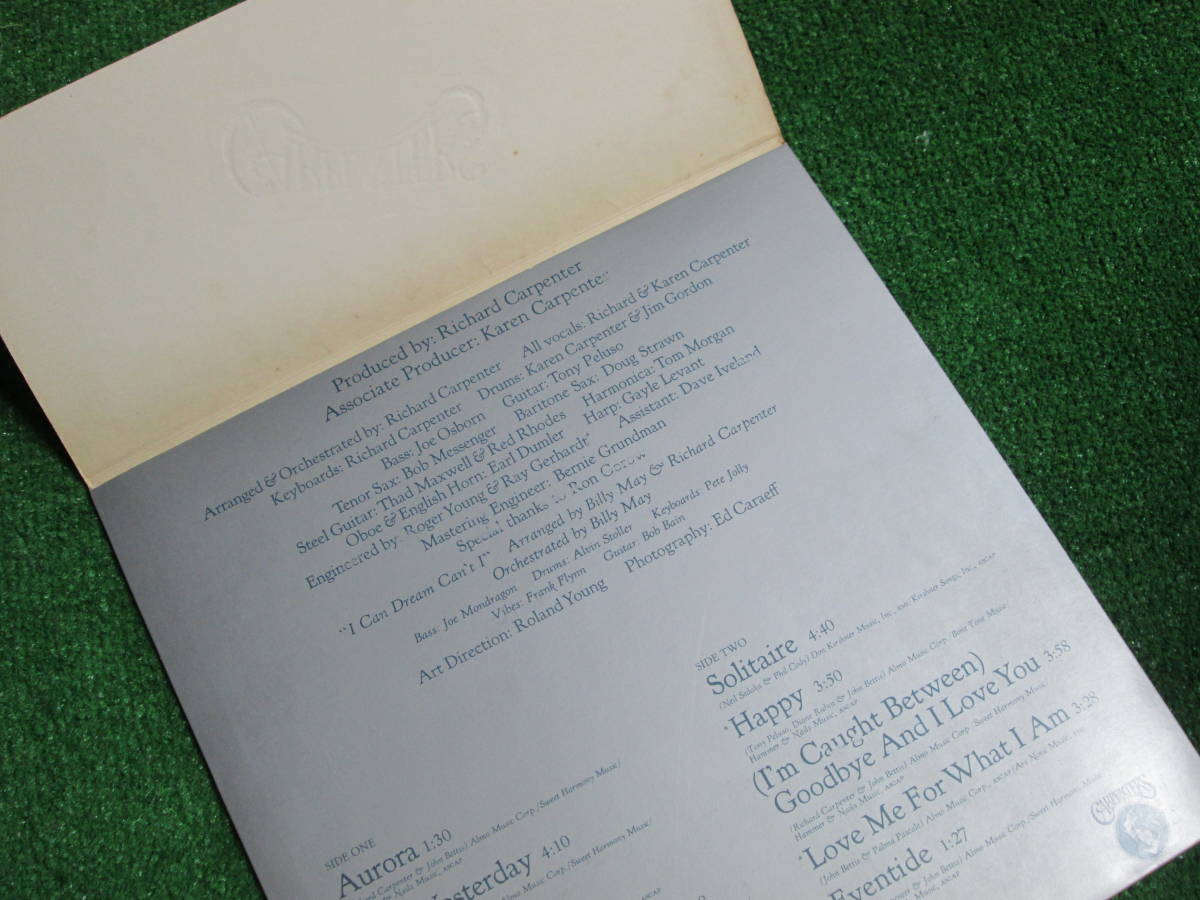 Produced by: Richard Carpenter
Associate Producer: Karen Carpenter
Arranged & Orchestrated by: Richard Carpenter All vocals: Richard & Karen Carpenter
Keyboards: Richard Carpenter Drums: Karen Carpenter & Jim Gordon
Bass: Joe Osborn Guitar: Tony Peluso
Tenor Sax: Bob Messenger Baritone Sax: Doug Strawn
Steel Guitar: Thad Maxwell & Red Rhodes Harmonica: Tom Morgan
Oboe & English Horn: Earl Dumler Harp: Gayle Levant
Engineered by: Roger Young & Ray Gerhardt Assistant: Dave Iveland
Mastering Engineer: Bernie Grundman
Special thanks to Ron Gorow
"I Can Dream Can't I" Arranged by Billy May & Richard Carpenter
Orchestrated by Billy May
Bass: Joe Mondragon Drums: Alvin Stoller Keyboards: Pete Jolly
Vibes: Frank Flynn Guitar: Bob Bain
Art Direction: Roland Young Photography: Ed Caraeff
SIDE ONE
Aurora 1:30
Richard Carpenter & John Bettis) Almo Music Corp./Sweet Harmony Music/
Hammer & Nails Music, ASCAP
Yesterday 4:10
Almo Music Corp./Sweet Harmony Music/
ASCAP
SIDE TWO
Solitaire 4:40
(Neil Sedaka & Phil Cody) Don Kirshner Music, Inc., BMI/Kirshner Songs, Inc., ASCAP
*Happy 3:50
(Tony Peluso, Diane Rubin & John Bettis) Almo Music Corp./Bone Tone Music
Hammer & Nails Music, ASCAP
(I'm Caught Between)
Goodbye And I Love You 3:58
(Richard Carpenter & John Bettis) Almo Music Corp./Sweet Harmony Music/
Hammer & Nails Music, ASCAP
*Love Me For What I Am 3:28
(John Bettis & Palma Pascale) Almo Music Corp., ASCAP/
Eventide 1:27
Carpenter & John Bettis) Almo Music Corp./Sweet Harmony Music/
Music, ASCAP
CARPENTERS